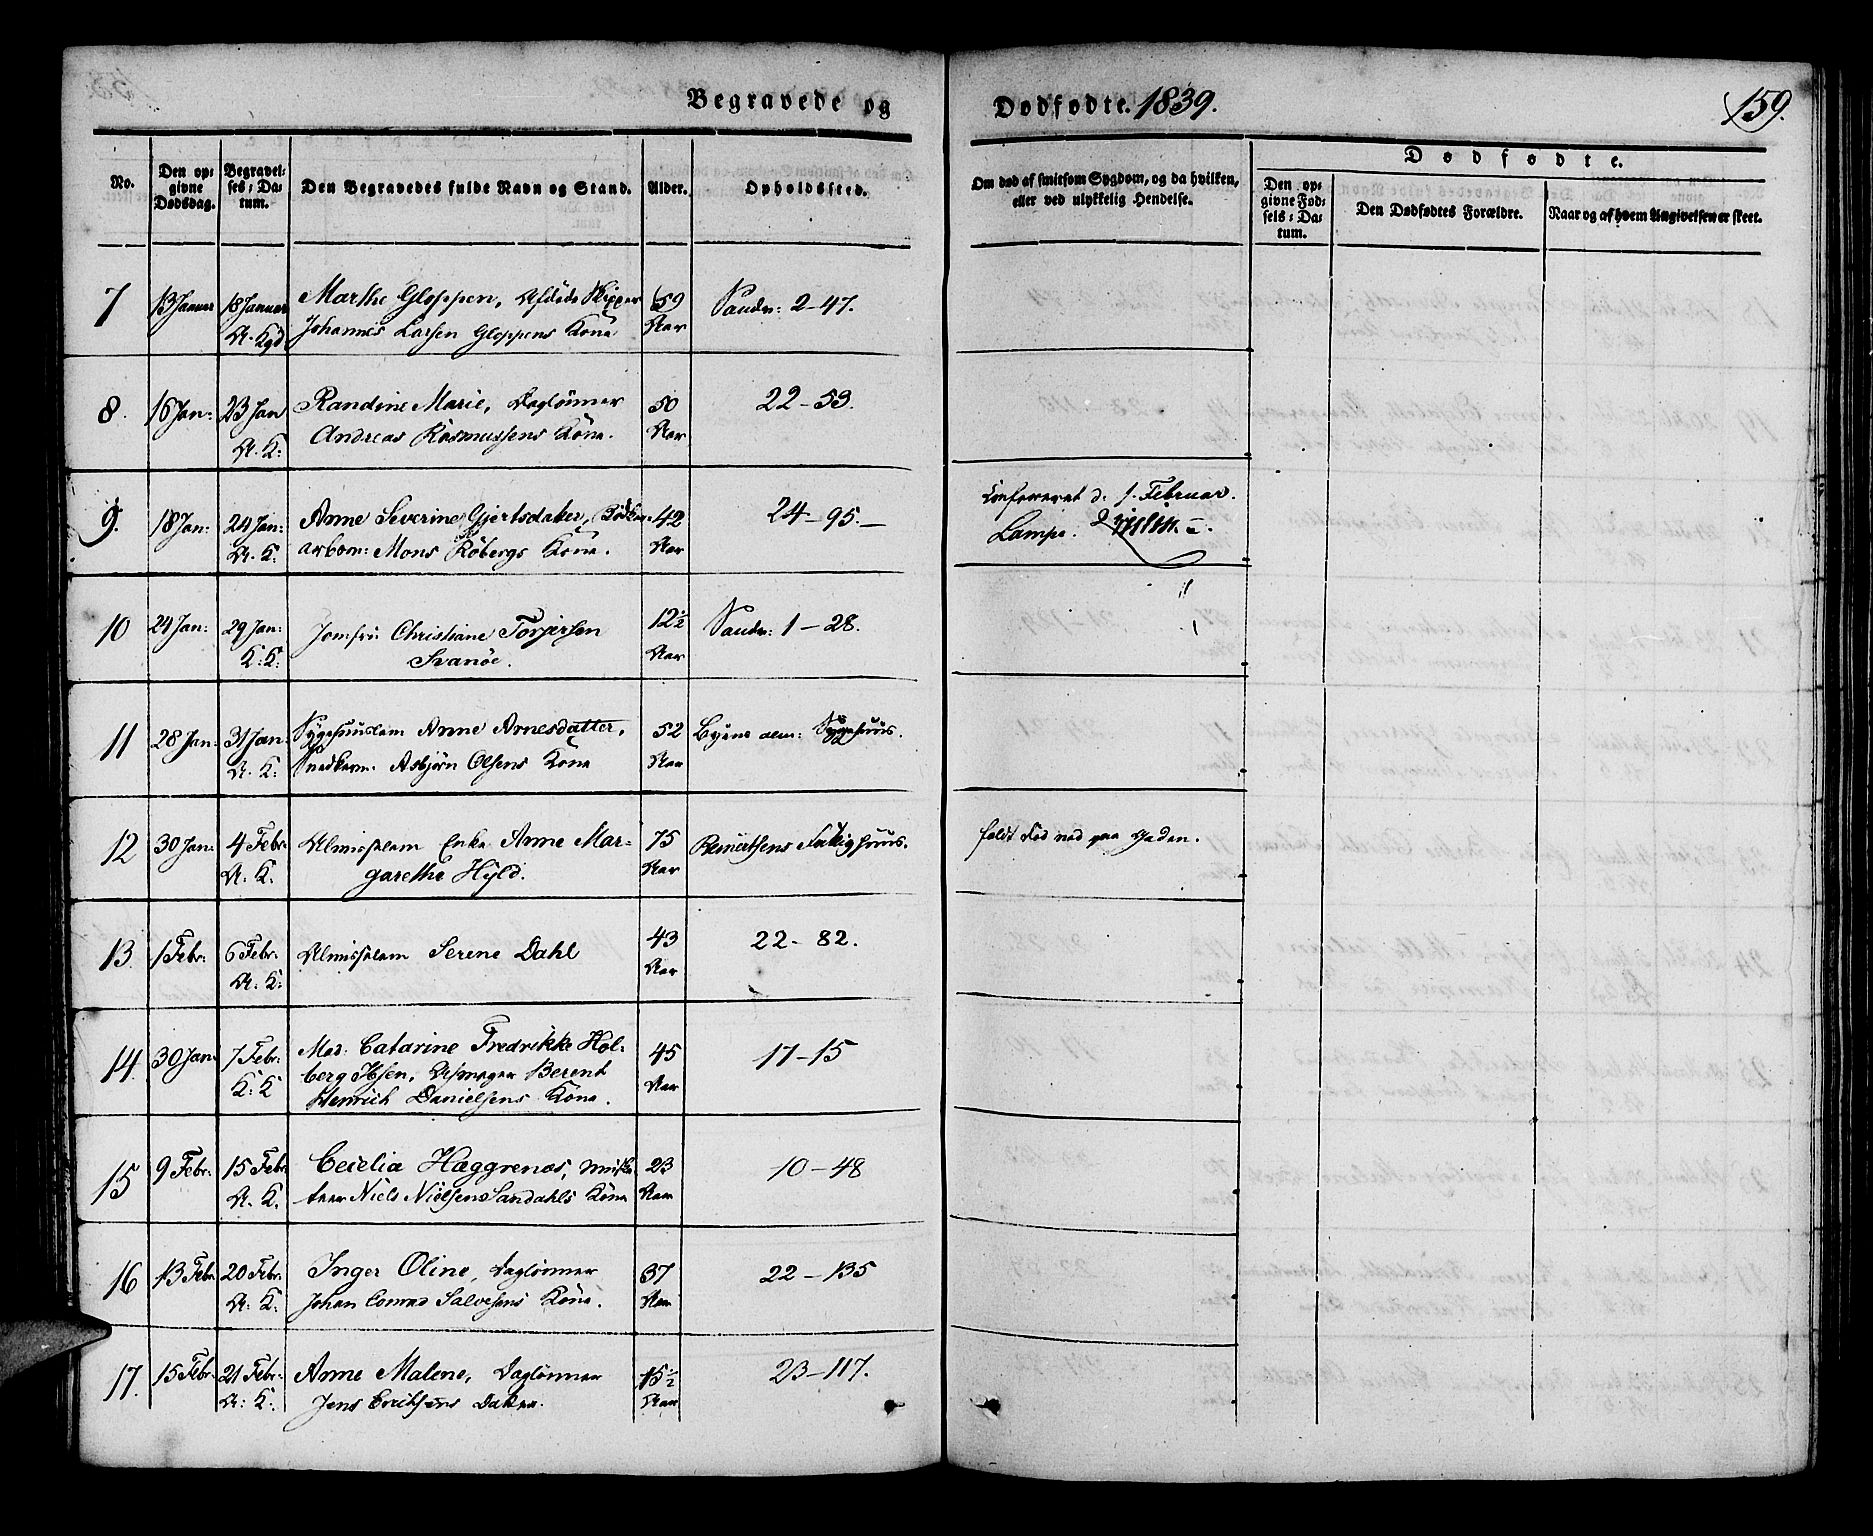 Begravede og Dødfødte. 1839. 159.
No.
Den opgivne Dødsdag.
Begravelses-Datum.
Den Begravedes fulde Navn og Stand.
Alder.
Opholdssted.
Om død af smitsom Sygdom, og da hvilken,
eller ved ulykkelig Hendelse.
Dødfødte.
Den opgivne Fødsels-Datum.
Den Dødfødtes Forældre.
Naar og af hvem Angivelsen er skeet.
7 13 Januar 18 Januar Marthe Gloppen, Afdøde Skipper 59 Sandv: 2-47.
A. Kgd Johannes Larsen Gloppens Kone Aar
8. 16 Jan: 23 Jan Randine Marie, Daglönner 50 22-53.
A. K: Andreas Rasmussens Kone. Aar
9. 18 Jan: 24 Jan: Anne Severine Gjertsdatter, 42 24-95.
A. K: arbom: Mons Röbergs Kone. Aar
Confereret d. 1. Februar.
Lampe.
10 24 Jan: 29 Jan: Jomfru Christiane Torjersen 12½ Sandv: 1-28.
K: K: Svanöe. Aar
11 28 Jan: 31 Jan: Sygehuuslem Anne Arnesdatter, 52 Byens alm: Sygehuus.
A. K: Snedkersv. Asbjörn Olsens Kone Aar
12 30 Jan: 4 Febr: Almisselem Enke Anne Mar- 75 Reinertsens Fattighuus.
A. K: garethe Hyld. Aar
faldt død ned paa Gaden.
13. 1 Febr: 6 Febr: Almisselem Serene Dahl 43 22-82.
A: K: Aar
14. 30 Jan: 7 Febr: Mad: Catarine Fredrikke Hol- 45 17-15
K: K berg Ibsen, Urmager Berent Aar
Henrich Danielsens Kone.
15 9 Febr: 15 Febr Cecelia Haggrenæs, 23 10-48
A. K. Niels Nielsens Sandahls Kone Aar
16 13 Febr 20 Febr: Inger Oline, Daglönner 37 22-135
A: K: Johan Conrad Salvesens Kone. Aar
17. 15 Febr: 21 Febr: Anne Malene, Daglönner 15½ 23-117.
A: K: Jens Erichsens Datter. Aar